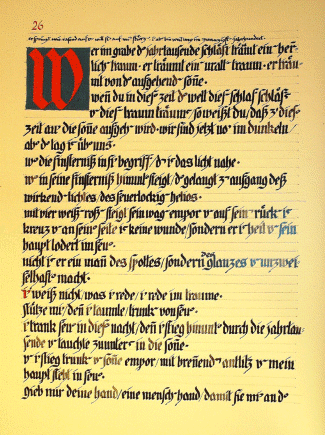 26
Wer im grabe d jahrtausende schläft träumt ein herr=
lich traum. er träumt ein uralt traum. er träu
mt von d aufgehend soñe.
wen du in dies zeit d welt dies schlaf schläfst
v dies traum träumst so weißt du, daß z dies
zeit au die soñe aufgeh wird. wir sind jetzt no im dunkeln,
ab d tag ist üb uns.
w die finsterniß in si begreift, d ist das licht nahe.
w in seine finsterniß hinunt steigt, d gelangt z aufgang deß
wirkend lichtes, des feuerlockig helios.
mit vier weiß roß steigt sein wag empor v auf sein rück ist
kreuz v an sein seite ist keine wunde, sondern er ist heil v sein
haupt lodert im feu.
nicht ist er ein man des spottes, sondern des glanzes v unzwei
felhaft macht.
i weiß nicht, was i rede, i rede im traume.
stütze mi, den i taumle, trunk von feu.
i trank feu in dies nacht, den i stieg hinunt durch die jahrtau=
sende v tauchte zuunt in die soñe.
v i stieg trunk v soñe empor, mit breñend antlitz v mein
haupt steht in feu.
gieb mir deine hand, eine mensch hand, damit sie mi an d